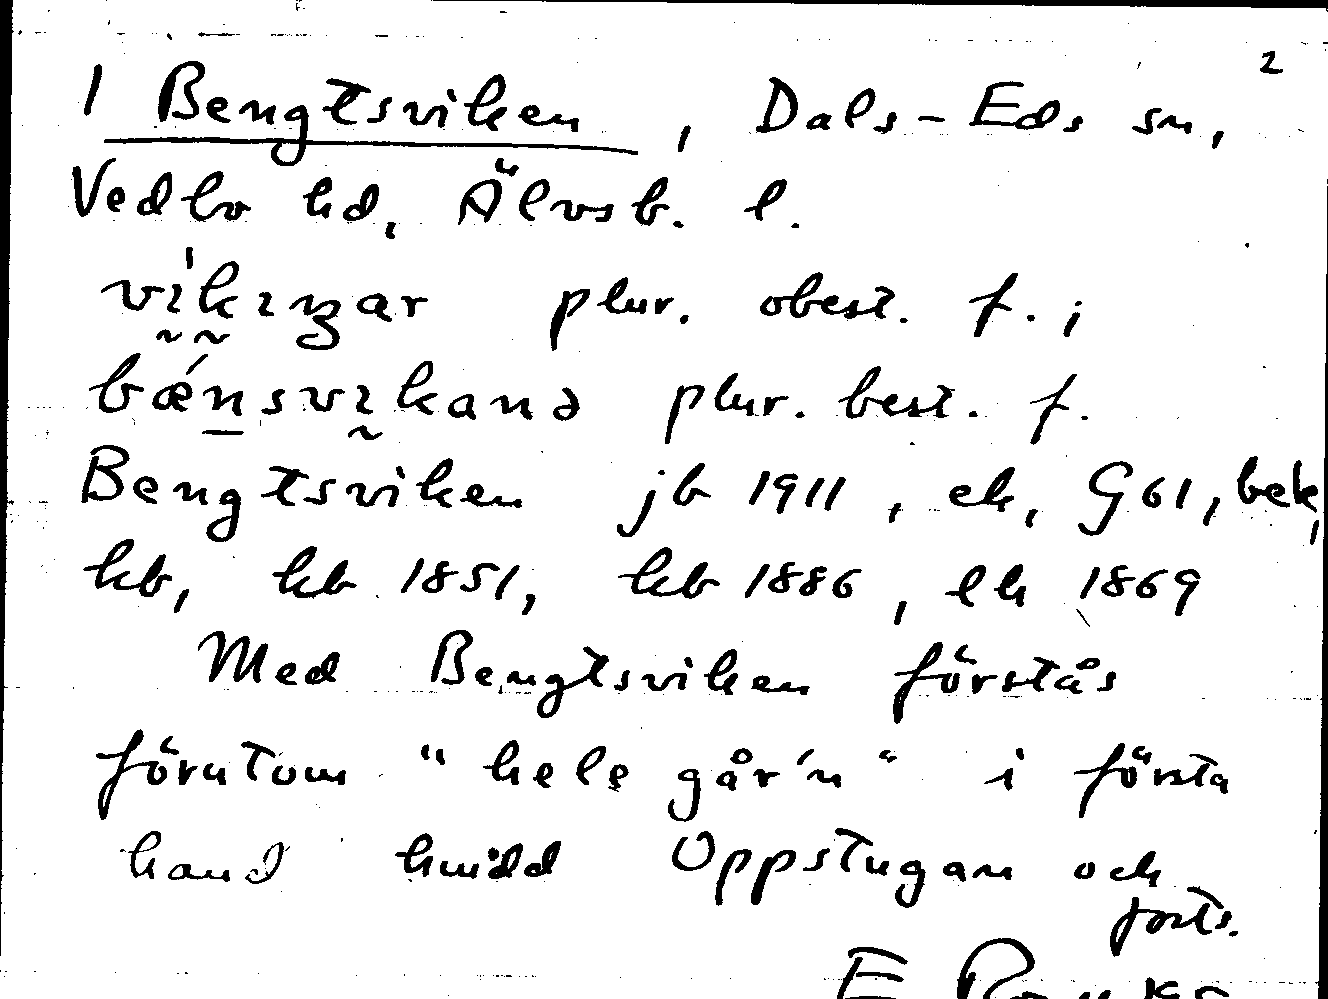 2
1 Bengtsviken, Dals-Eds sn,
Vedbo hd, Älvsb. l.
plur. obest. f. ;
plur. best. f.
Bengtsviken jb 1911, ek, G61, bek,
kb, kb 1851, kb 1886, lh 1869
Med Bengtsviken förstås
förutom "hele går'n" i första
hand Oppstugan och
forts.
E